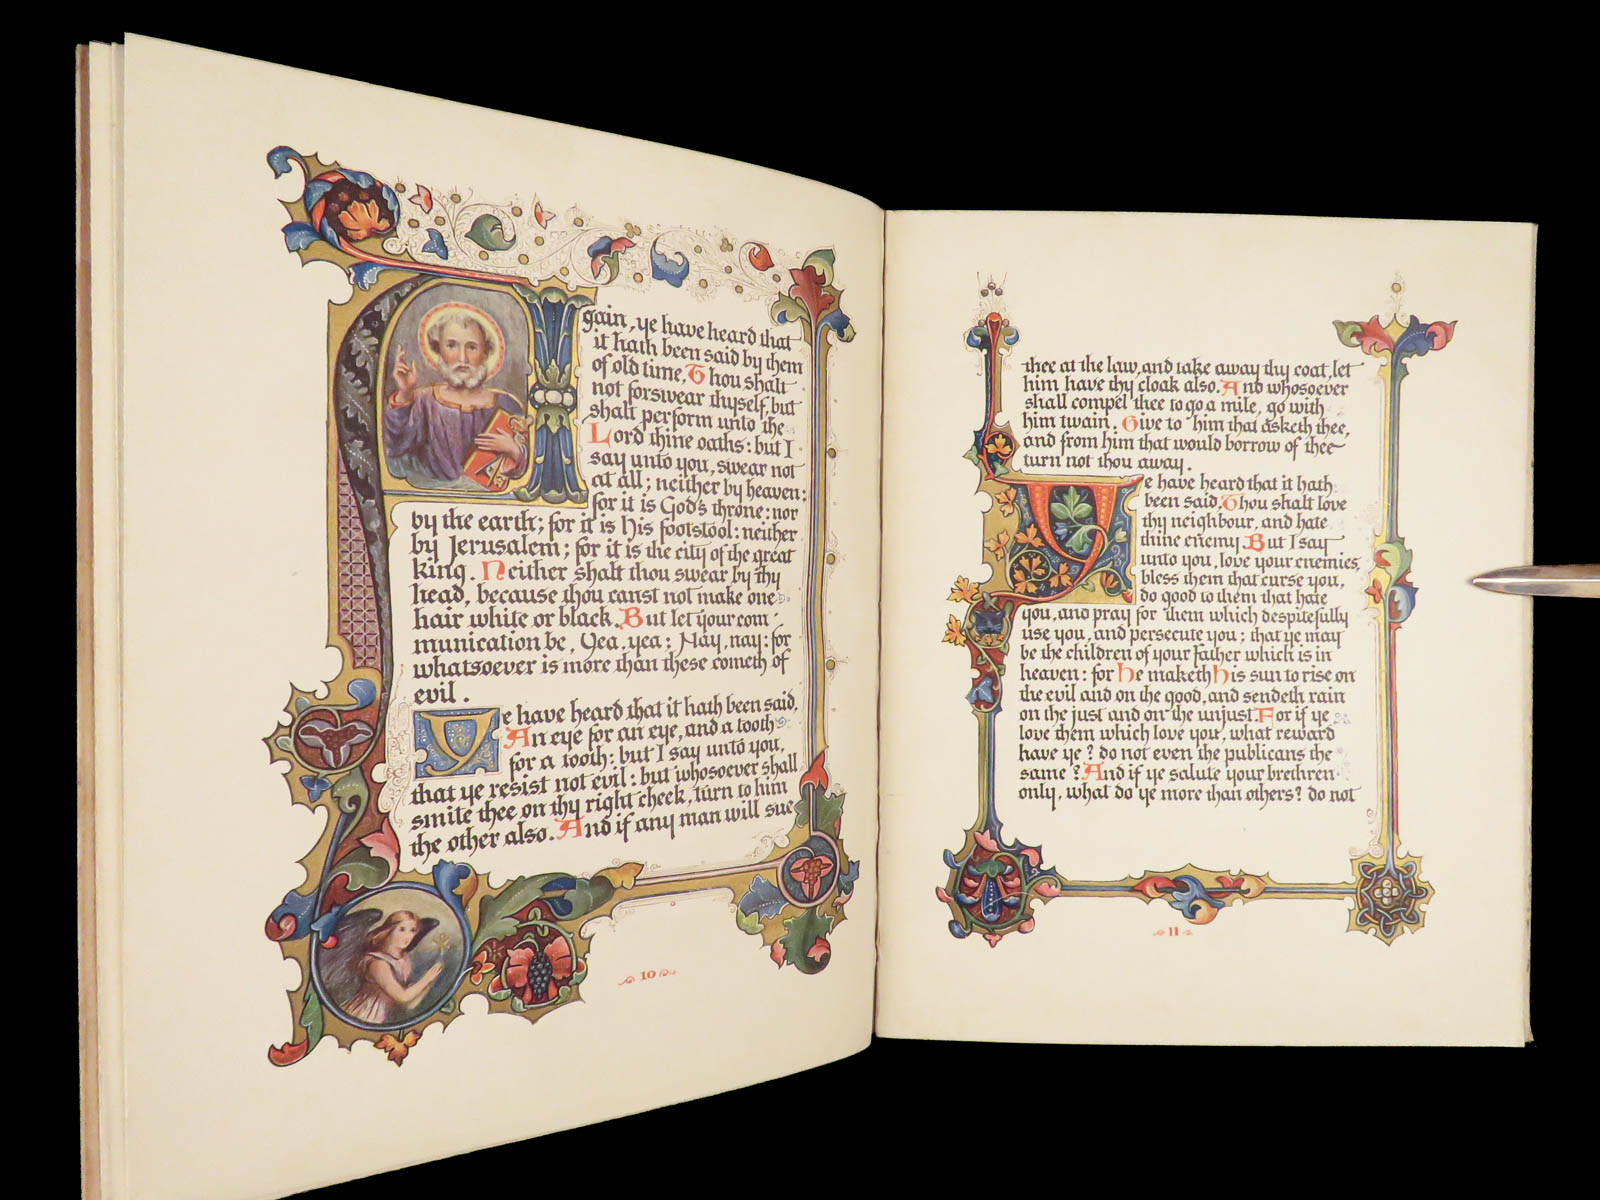 Again, ye have heard that
it hath been said by them
of old time, Thou shalt
not forswear thyself, but
shalt perform unto the
Lord thine oaths: but I
say unto you, swear not
at all; neither by heaven:
for it is God's throne: nor
by the earth; for it is His footstool: neither
by Jerusalem; for it is the city of the great
king. Neither shalt thou swear by thy
head, because thou canst not make one
hair white or black. But let your com
munication be, Yea, yea; Nay, nay: for
whatsoever is more than these cometh of
evil.
Ye have heard that it hath been said,
An eye for an eye, and a tooth
for a tooth: but I say unto you,
that ye resist not evil: but whosoever shall
smite thee on thy right cheek, turn to him
the other also. And if any man will sue
10
thee at the law, and take away thy coat, let
him have thy cloak also. And whosoever
shall compel thee to go a mile, go with
him twain. Give to him that asketh thee,
and from him that would borrow of thee
turn not thou away.
Ye have heard that it hath
been said, Thou shalt love
thy neighbour, and hate
thine enemy. But I say
unto you, love your enemies,
bless them that curse you,
do good to them that hate
you, and pray for them which despitefully
use you, and persecute you; that ye may
be the children of your Father which is in
heaven: for He maketh His sun to rise on
the evil and on the good, and sendeth rain
on the just and on the unjust. For if ye
love them which love you, what reward
have ye? do not even the publicans the
same? And if ye salute your brethren
only, what do ye more than others? do not
11